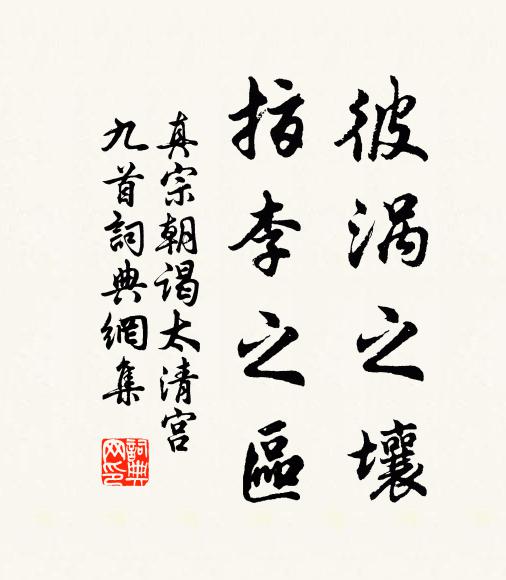 彼涡之壤
指李之區
真宗朝谒太清宫
九首詞典網集
詞典网印